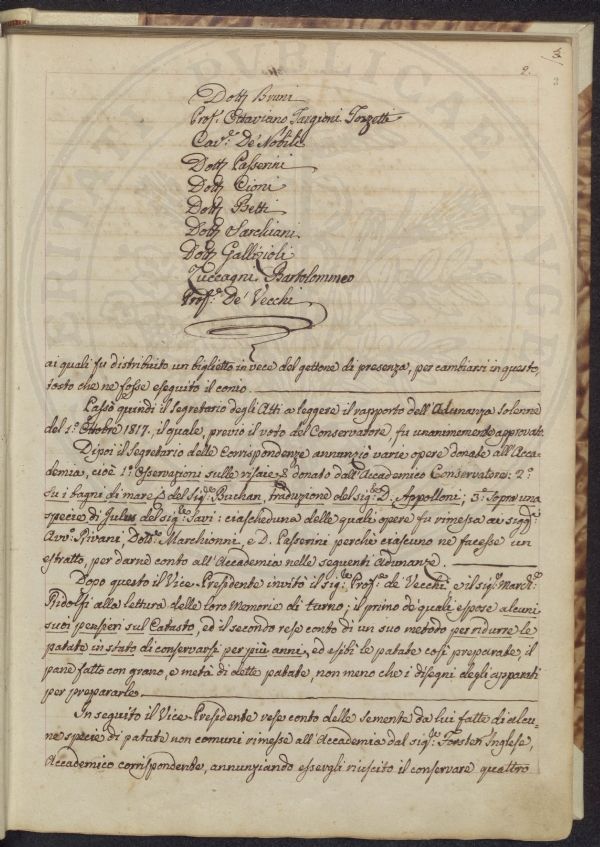 2.
Dott. Bruni
Prof. Ottaviano Targioni Tozzetti
Cav.e De' Nobili
Dott. Passerini
Dott. Cioni
Dott. Betti
Dott. Sarchiani
Dott. Gallizioli
Zuccagni Bartolommeo
Prof.e De' Vecchi
ai quali fu distribuito un biglietto in vece del gettone di presenza, per cambiarsi in questo,
tosto che ne fosse eseguito il conio.
Passò quindi il Segretario degli Atti a leggere il rapporto dell'Adunanza Solenne
del 1.o Ottobre 1817., il quale, previo il voto del Conservatore, fu unanimemente approvato.
Dipoi il Segretario delle Corrispondenze annunziò varie opere donate all'Acca-
demia, cioè 1.o Osservazioni sulle risaie & donato dall'Accademico Conservatore: 2.o
su i bagni di mare & del Sig.re Buchan, traduzione del sig.re D. Appolloni; 3.o Sopra una
specie di Julus del sig.re Savi: ciaschedune delle quali opere fu rimessa ai sigg.ri
Avv.o Rivani, Dott.e Marchionni, e D. Passerini perchè ciascuno ne facesse un
estratto, per darne conto all'Accademia nelle seguenti Adunanze.
Dopo questo il Vice-Presidente invitò il sig.re Prof.e de' Vecchi e il sig.e March.e
Ridolfi alla lettura delle loro Memorie di turno; il primo de' quali espose alcuni
suoi pensieri sul Catasto, ed il secondo rese conto di un suo metodo per ridurre le
patate in stato di conservarsi per più anni, ed esibì le patate così preparate, il
pane fatto con grano, e metà di dette patate, non meno che i disegni degli apparati
per prepararle.
In seguito il Vice-Presidente rese conto delle semente da lui fatte di alcu-
ne specie di patate non comuni rimesse all'Accademia dal sig.e Forster Inglese,
Accademico corrispondente, annunziando essergli riuscito il conservare quattro